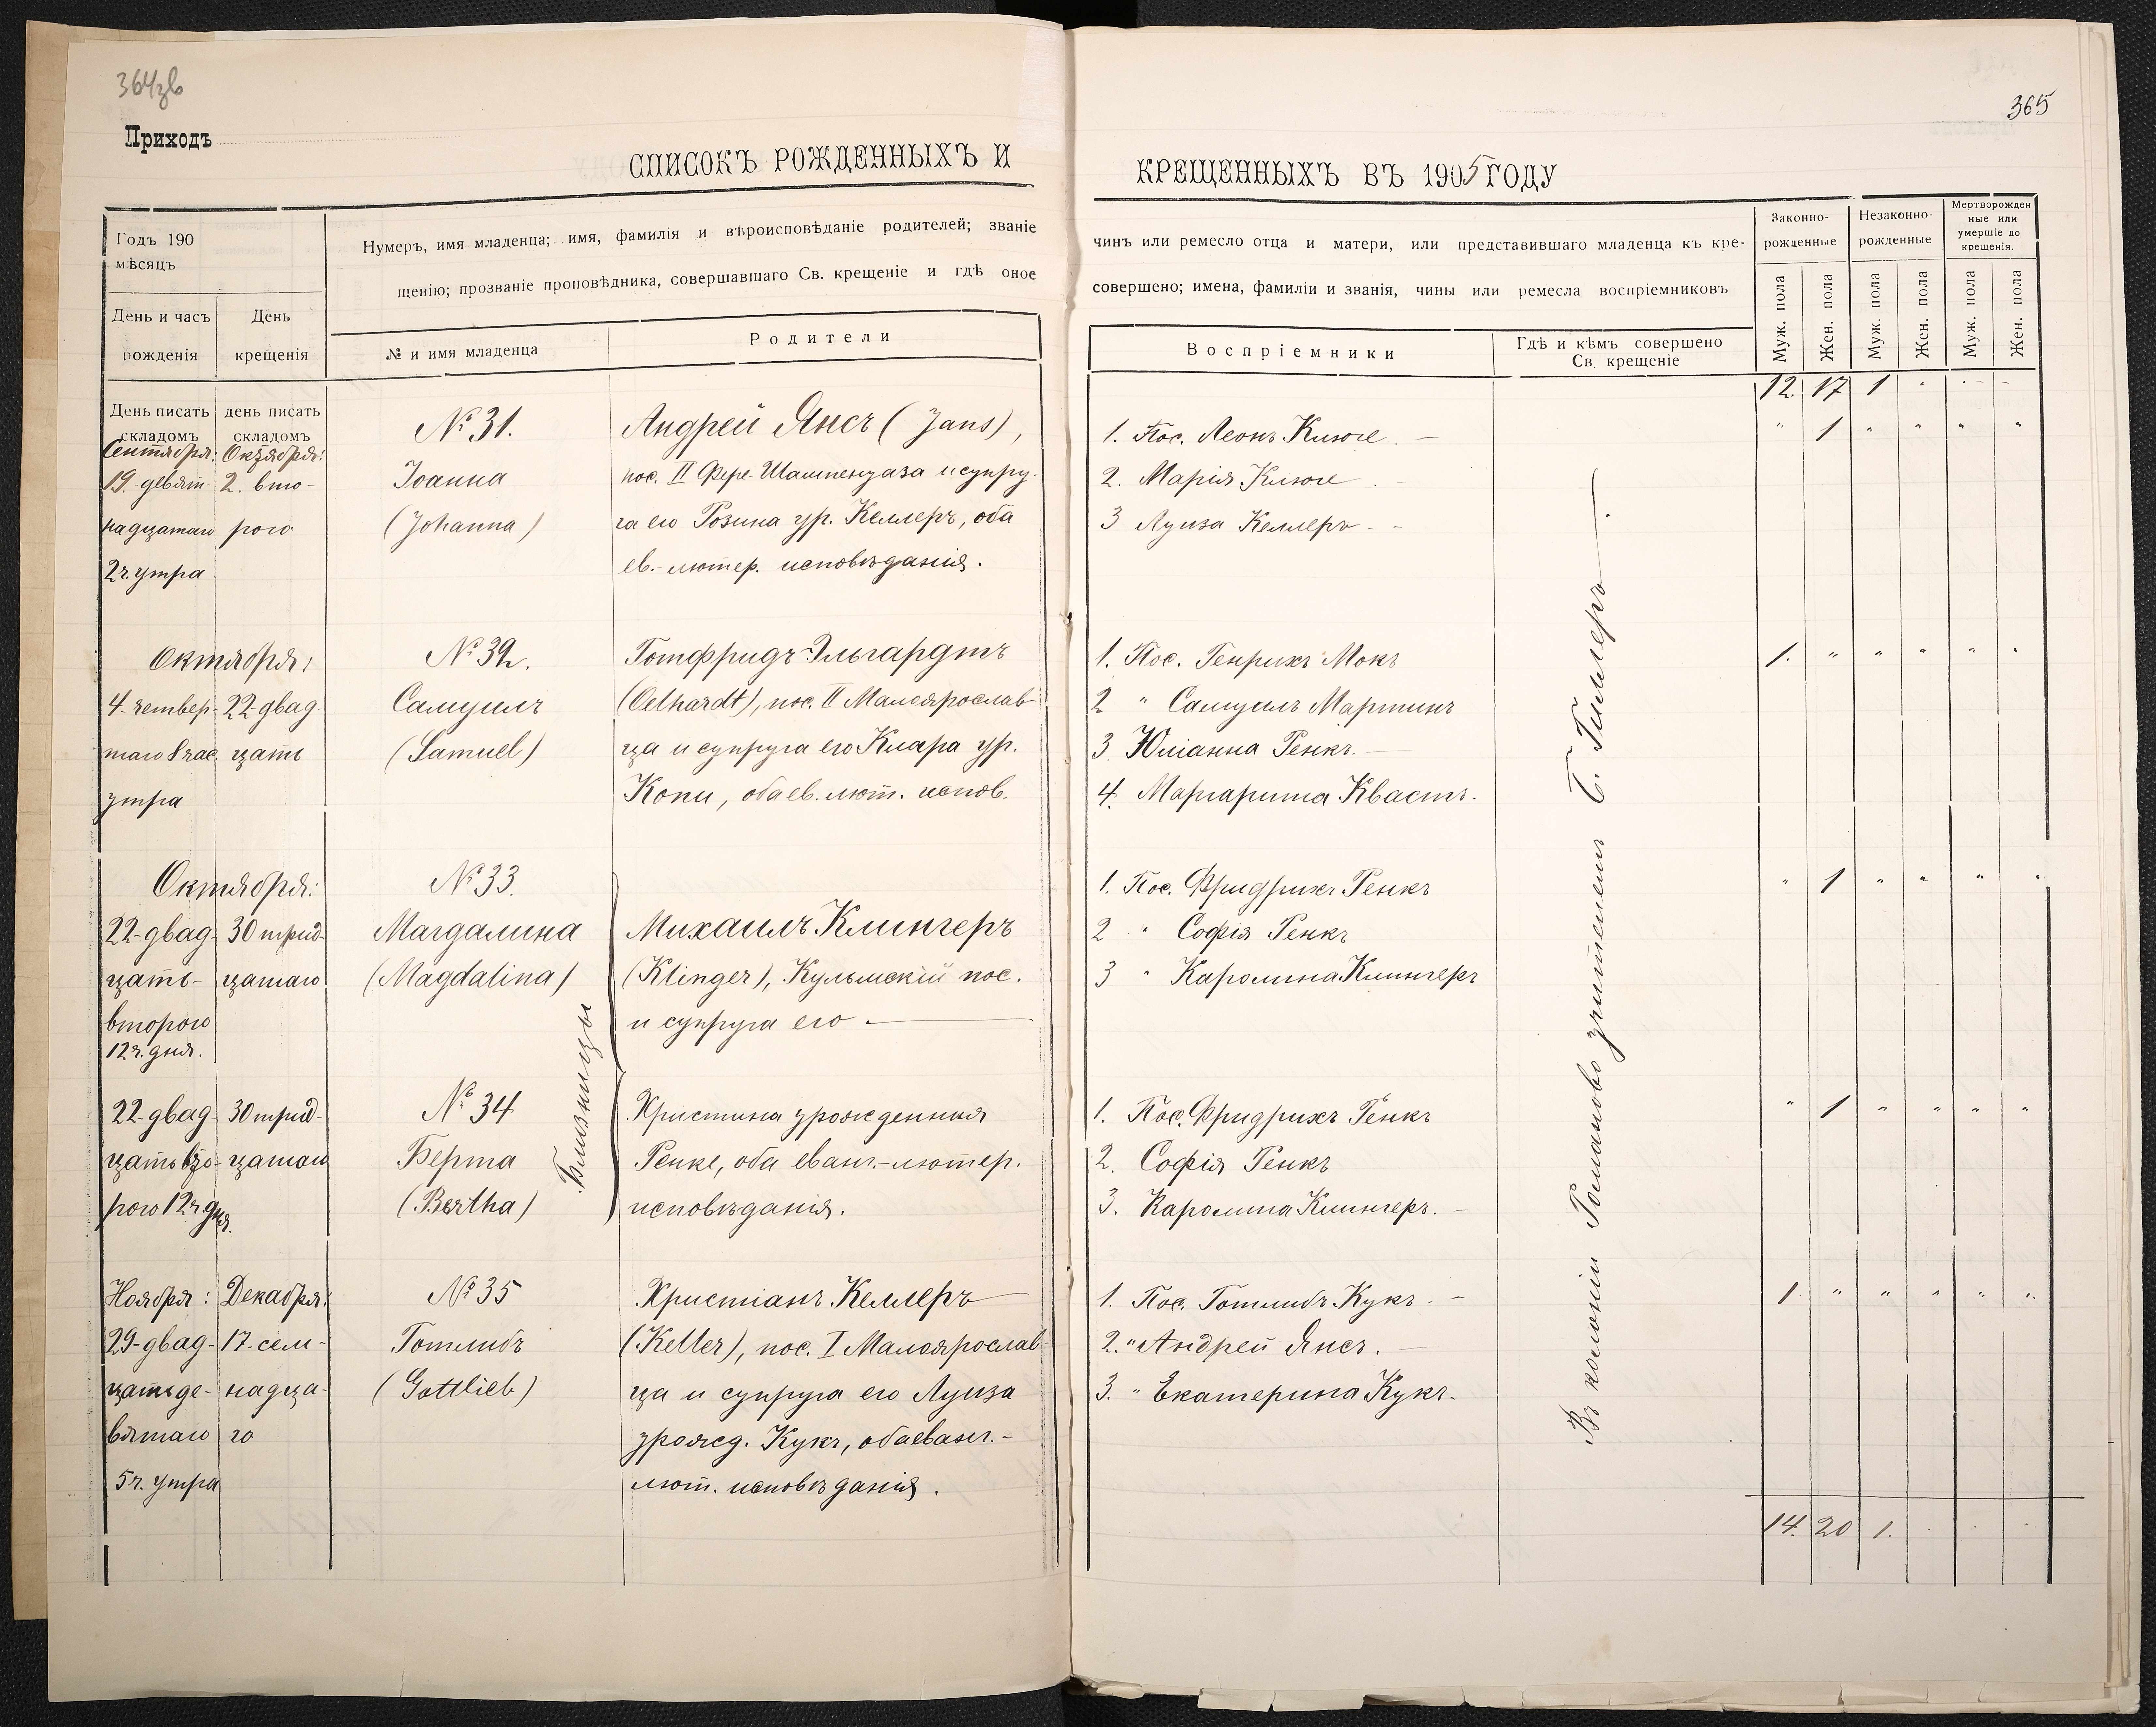 364зв
365
Приходъ
СПИСОКЪ РОЖДЕННЫХЪ И КРЕЩЕННЫХЪ ВЪ 1905 ГОДУ
Годъ 190
мѣсяцъ
День и часъ рожденія
День крещенія
Нумеръ, имя младенца; имя, фамилія и вѣроисповѣданіе родителей; званіе чинъ или ремесло отца и матери, или представившаго младенца къ кре-
щенію; прозваніе проповѣдника, совершавшаго Св. крещеніе и гдѣ оное совершено; имена, фамиліи и званія, чины или ремесла воспріемниковъ
№ и имя младенца
Родители
Воспріемники
Гдѣ и кѣмъ совершено
Св. крещеніе
Законно-
рожденные
Незаконно-
рожденные
Мертворожден
ные или
умершіе до
крещенія.
Муж. пола
Жен. пола
Муж. пола
Жен. пола
Муж. пола
Жен. пола
12. 17 1
День писать складомъ
день писать складомъ
Сентября:
19. девят-
надцатаго
2ч. утра
Октября:
2. вто-
рого
№ 31.
Іоанна
(Johanna)
Андрей Янсъ (Jans),
пос. II Фере-Шампенуаза и супру-
га его Розина ур. Келлеръ, оба
ев.-лютер. исповѣданія.
1. Пос. Леонъ Клюге. —
2. Марія Клюге. —
3 Луиза Келлеръ - -
" 1 " " " "
Октября:
4-четвер-
таго 8 час.
утра
22-двад-
цать
№ 32.
Самуилъ
(Samuel)
Готфридъ Эльгардтъ
(Oelhardt), пос. II Малоярослав-
ца и супруга его Клара ур.
Копи, оба ев. лют. испов.
1. Пос. Генрихъ Мокъ
2 " Самуилъ Мартинъ
3 Юліанна Генкъ. —
4. Маргарита Квастъ.
1. " " " " "
Октября:
22-двад-
цать-
второго
12ч. дня.
30 трид-
цатаго
№ 33.
Магдалина
(Magdalina)
Михаилъ Клингеръ
(Klinger), Кульмскій пос.
и супруга его —
1. Пос. Фридрихъ Генкъ
2 " Софія Генкъ
3 " Каролина Клингеръ
" 1 " " " "
Близницы
22-двад
цать вто-
рого 12ч. дня.
30 трид-
цатаго
№ 34
Берта
(Bertha)
Христина урожденная
Генке, оба еванг.-лютер.
исповѣданія.
1. Пос. Фридрихъ Генкъ
2. Софія Генкъ
3. Каролина Клингеръ. —
" 1 " " " "
Ноября:
29-двад-
цать де-
вятаго
5ч. утра
Декабря:
17-сем-
надца-
го
№ 35
Готлибъ
(Gottlieb)
Христіанъ Келлеръ
(Keller), пос. I Малоярослав-
ца и супруга его Луиза
урожд. Кукъ, оба еванг.-
лют. исповѣданія.
1. Пос. Готлибъ Кукъ. —
2. " Андрей Янсъ. —
3. " Екатерина Кукъ.
1 " " " " "
Въ колоніи Романово учителемъ
14. 20 1.